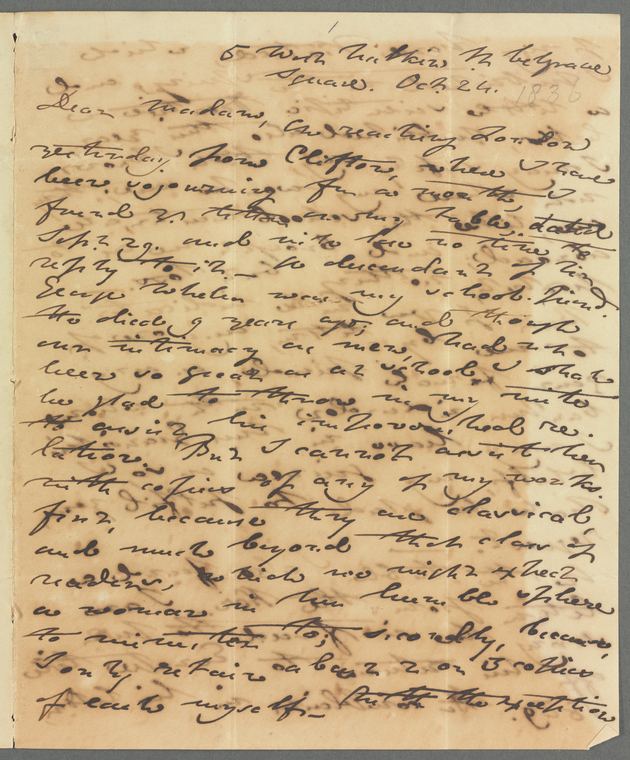 5 West Halkin St Belgrave
Square. Oct. 24.
1836
Dear Madam, On reaching London
yesterday from Clifton, where I have
been sojourning for a month, I
found yr letter on my table, dated
Septr 29. and will lose no time to
reply to it. A descendant of the
George was my school-friend.
He died 9 years ago; and though
our intimacy as men, had not
been so great as at school, I shall
be glad to throw in my mite
to assist his impoverished re-
lations. But I cannot assist them
with copies of any of my works.
first, because they are classical,
and much beyond that class of
readers, which we might expect
a woman in her humble sphere
to minister to; secondly, because,
I only retain about 2 or 3 copies
of each myself. With the exception